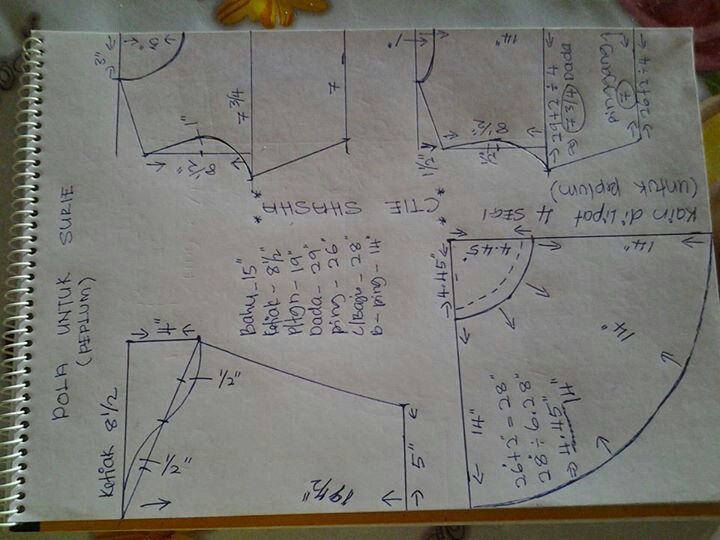 POLA UNTUK SURIE
(PEPLUM)
Ketiak 8 1/2
4"
1/2"
1/2"
19 1/2"
5"
Bahu - 15"
Ketiak - 8 1/2"
p/tgn - 19"
Dada - 29"
ping - 26"
L/Bagu - 28"
b-ping - 14"
* CTIE SHASHA *
3"
8"
1"
8 1/2"
7 3/4
7
1"
14"
1 1/2"
8 1/2"
1/2"
29+2 ÷ 4
⇒ 7 3/4 Dada
7
26+2 ÷ 4
Kain di lipat 4 SEGI
(untuk peplum)
4.45"
4.45"
14"
14"
14"
26+2 = 28"
28 ÷ 6.28"
⇒ 4.45"
14"